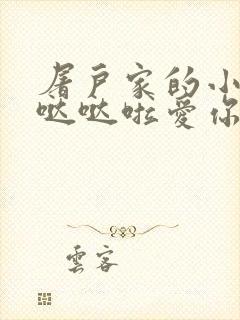 屠户家的小
哒哒啦爱你
雲客